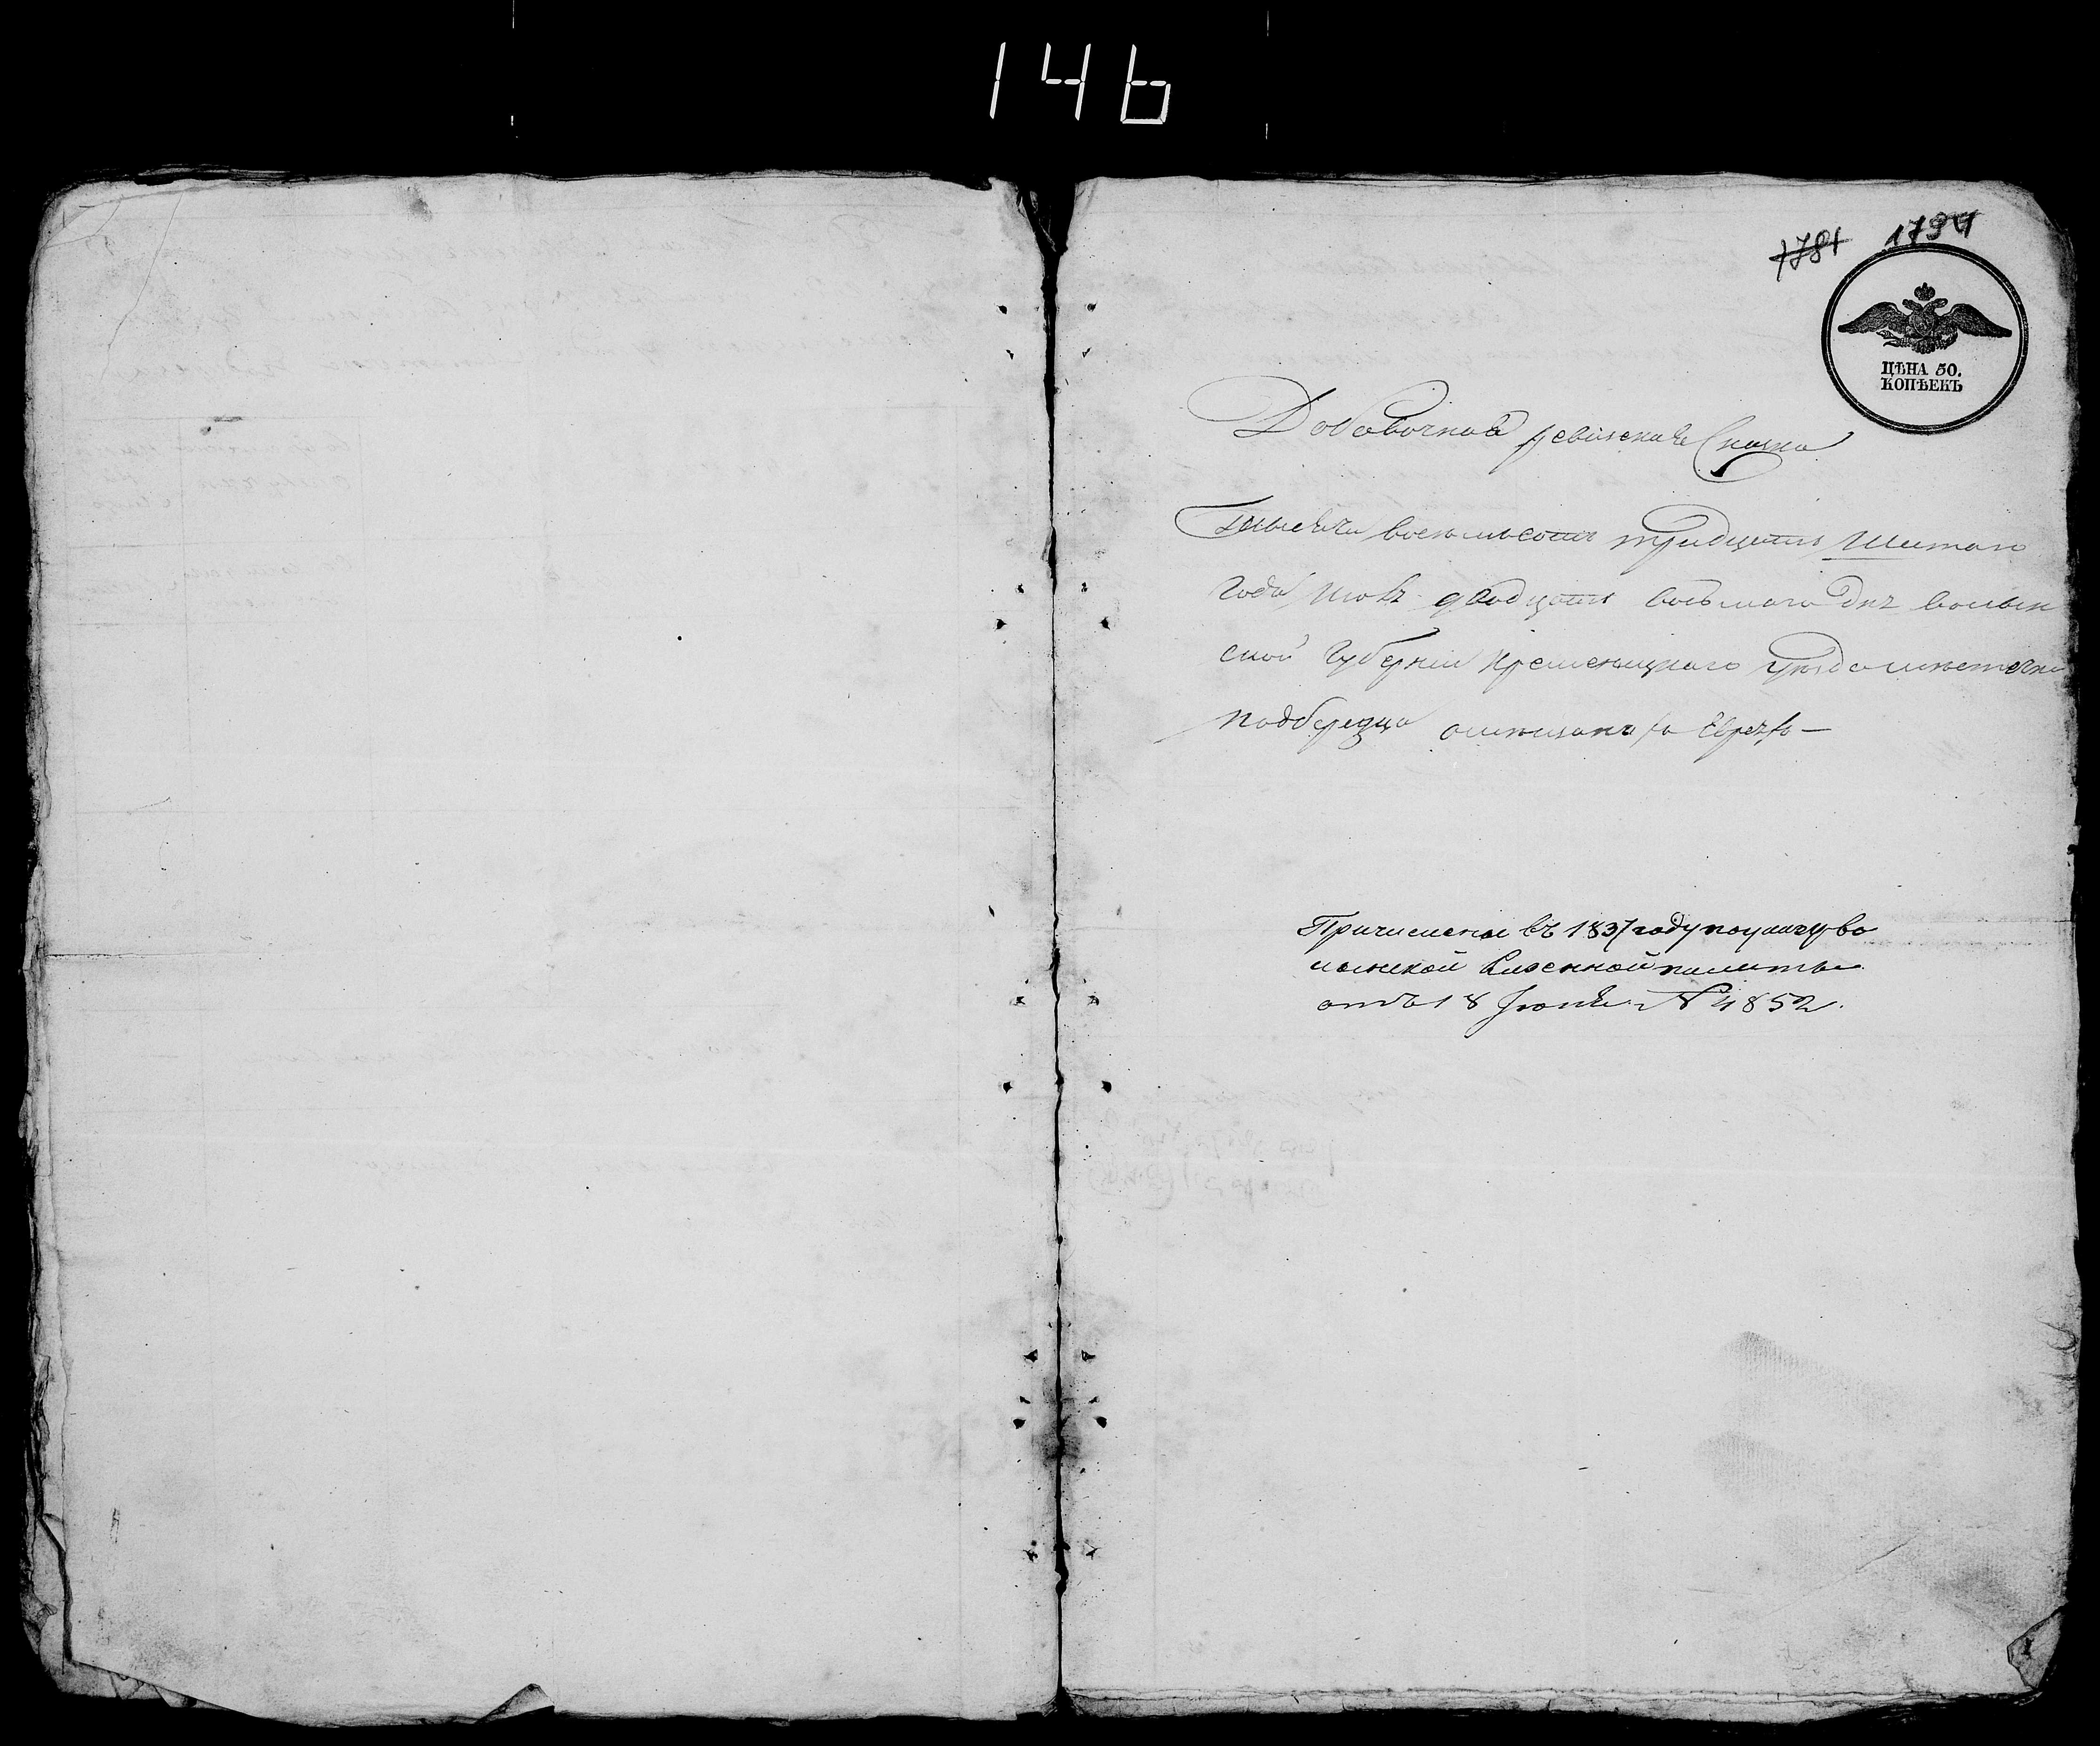 146
1781 1794
ЦѢНА 50.
КОПѢЕКЪ
Добавочная ревизская Сказка
Тысяча восемьсотъ тридцать шестаго
года Июля двадцать восьмаго дня волын
ской губернiи Кременецкаго уѣзда мѣстечка
подберезца о мѣщанахъ Евреяхъ —
Причислены въ 1837 году по указу Во
лынской Казенной палаты
отъ 18 Iюня № 4852.